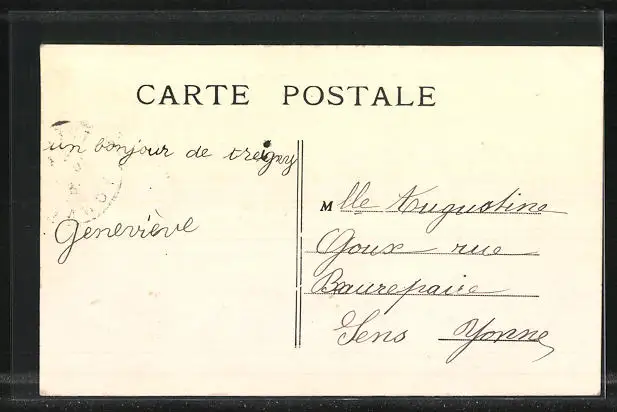 CARTE POSTALE
un bonjour de treigny
Geneviève
Mlle Augustine
Goux rue
Beaurepaire
Sens Yonne